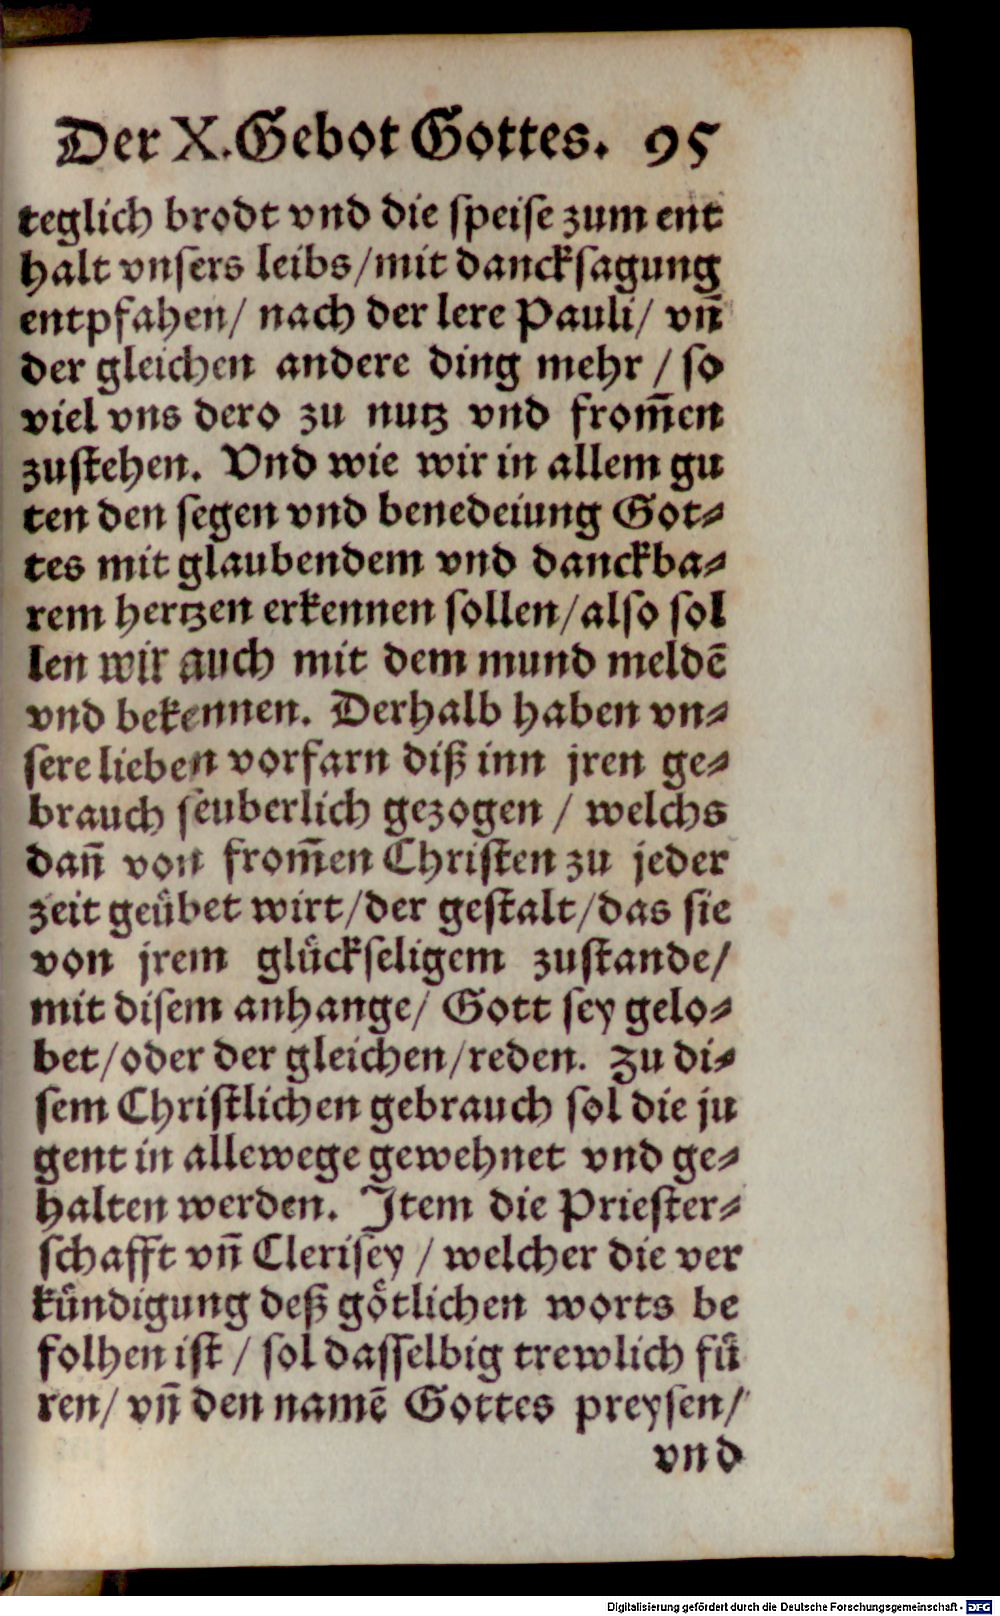 Der X. Gebot Gottes. 95
teglich brodt vnd die speise zum ent
halt vnsers leibs/mit dancksagung
entpfahen/ nach der lere Pauli/ vn̄
der gleichen andere ding mehr / so
viel vns dero zu nutz vnd from̄en
zustehen. Vnd wie wir in allem gu
ten den segen vnd benedeiung Got⸗
tes mit glaubendem vnd danckba⸗
rem hertzen erkennen sollen/also sol
len wir auch mit dem mund meldē
vnd bekennen. Derhalb haben vn⸗
sere lieben vorfarn diß inn jren ge⸗
brauch seuberlich gezogen / welchs
dan̄ von from̄en Christen zu jeder
zeit geuͤbet wirt/der gestalt/das sie
von jrem gluͤckseligem zustande/
mit disem anhange/ Gott sey gelo⸗
bet/oder der gleichen/reden. Zu di⸗
sem Christlichen gebrauch sol die ju
gent in allewege gewehnet vnd ge⸗
halten werden. Item die Priester⸗
schafft vn̄ Clerisey / welcher die ver
kuͤndigung deß goͤtlichen worts be
folhen ist / sol dasselbig trewlich fuͤ
ren/ vn̄ den namē Gottes preysen/
vnd
Digitalisierung gefördert durch die Deutsche Forschungsgemeinschaft - DFG